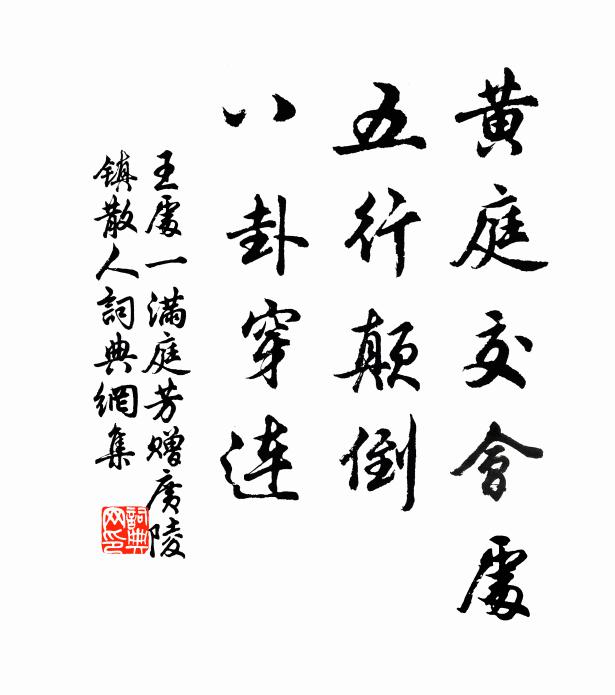 黄庭交會處
五行顛倒
八卦穿連
王處一滿庭芳赠廣陵
镇散人詞典網集
詞典网印